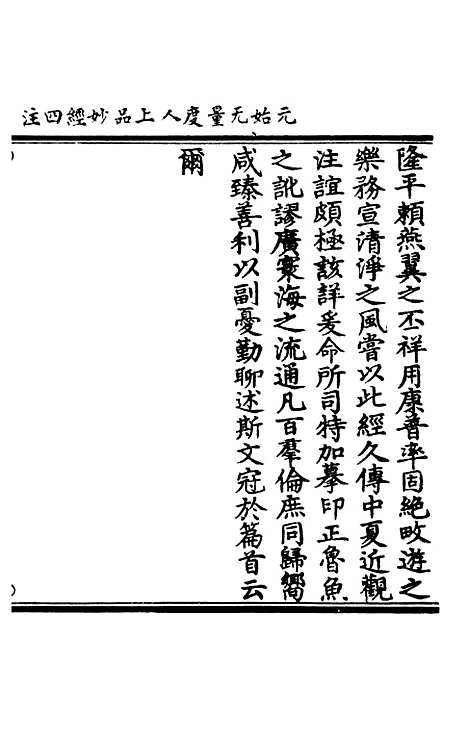 元始无量度人上品妙經四注
隆平頼燕翼之丕祥用康普率固絶畋遊之
樂務宣清淨之風嘗以此經久傳中夏近觀
注誼頗極該詳爰命所司特加摹印正魯魚
之訛謬廣寰海之流通凡百羣倫庶同歸嚮
咸臻善利以副憂勤聊述斯文冠於篇首云
爾